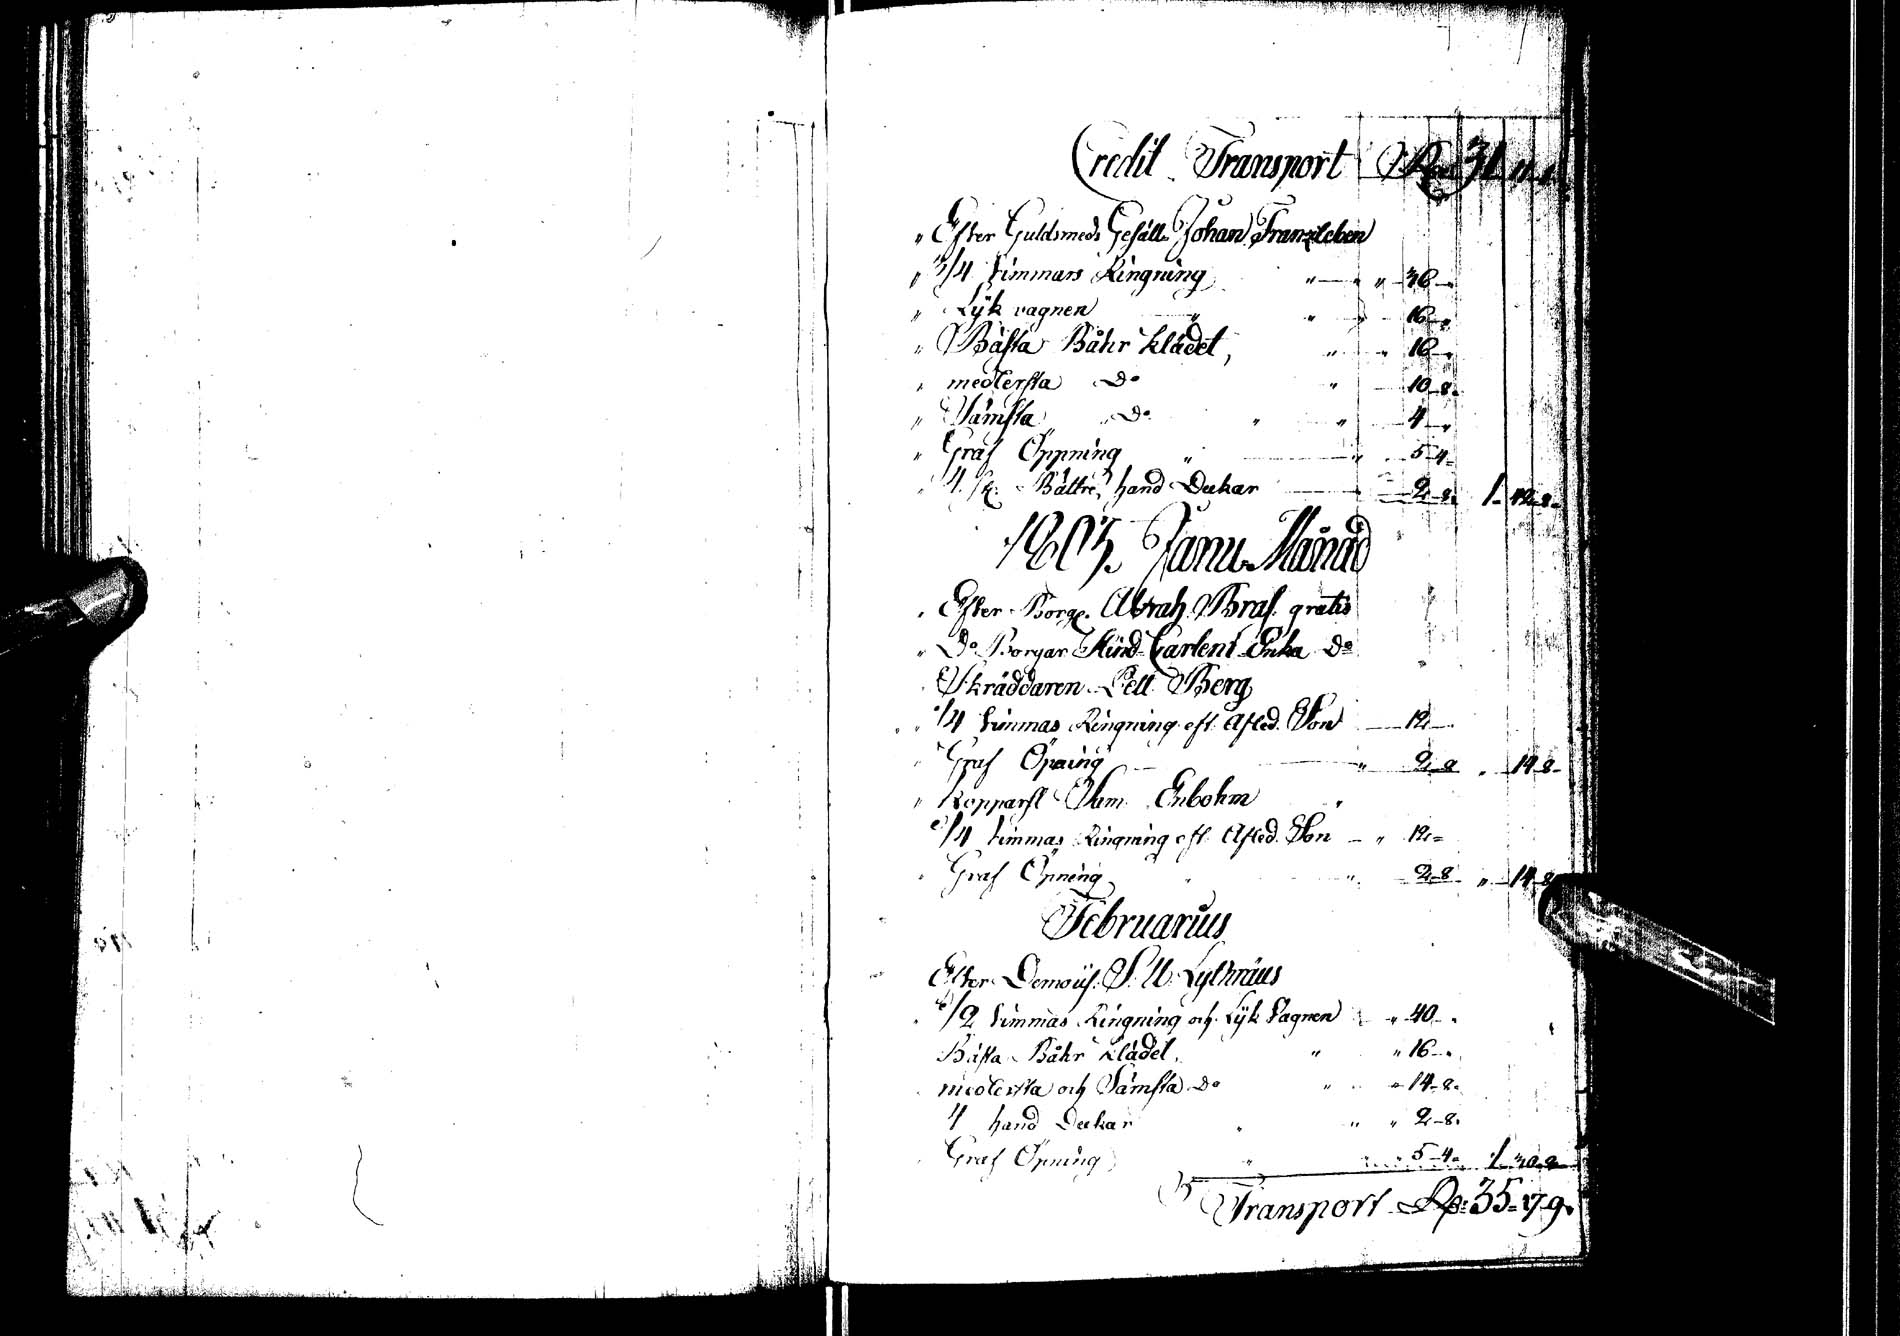 Credit Transport Rd 31 11 1
" Efter Guldsmeds Gesäll Johan Franzleben
" 3/4 timmars Ringning " " " 36 "
" Lyk vagnen " " " 16 "
" Bästa Båhr klädet, " " 16 "
" medlersta Do " 10-8
" Sämsta Do " " 4 "
" Graf Öppning " " 5-4
" 4 st. Bättre hand Deckar 2-8 1-42-8
1803. Janu. Månad
Efter Borge. Abrah. Braf. gratis
" Do Borgar Enka Do
Skräddaren Pett. Berg
1/4 timmas Ringning eft. Afled. Son 12
Graf Öpning " 2-8 " 14-8
" Kopparsl. Sam. Enbohm "
1/4 timmas Ringning eft. Afled. Son " 12
Graf Öpning " " 2-8 " 14-8
Februarius
Efter Demois. Lythräus
1/2 timmas Ringning och Lyk Vagnen " 40
Bästa Båhr klädet. " " 16
medlersta och Sämsta Do " " 14-8
4 hand Deckar " " " 2-8
Graf Öpning " 5-4 1-30-8
Transport Rd 35-17-9